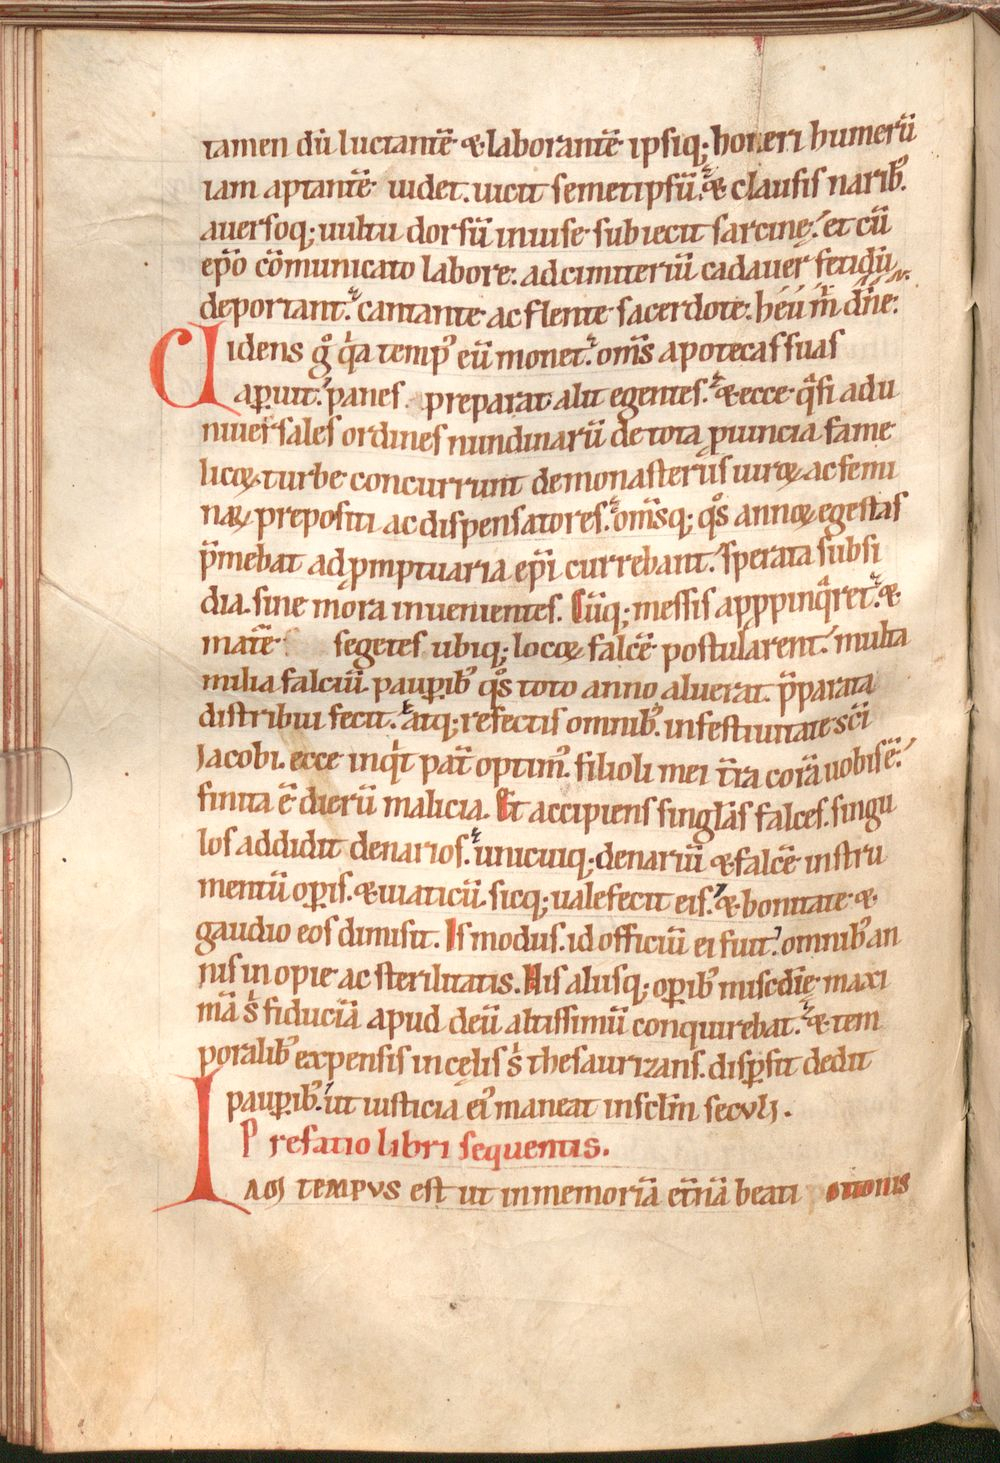 tamen dū luctantē &laborantē ipsiq; honeri humerū
iam aptantē uidet. uicit semetipsū. & clausis narib᾽.
auersoq; uultu dorsū inuise subiecit sarcinę. et cū
ep̄o cōmunicato labore: adcimiteriū cadauer fetidū
deportant. cantante ac flente sacerdote. héu m̄ dn̄e.
Uidens g° qͥa temp᾽ eū monet. om̄s apotecas suas
aꝑuit. panes preparat alit egentes. & ecce qͣsi adu
niuersales ordines nundinarū de tota ꝓuincia fame
licoꝝ turbe concurrunt de monasteriis uiroꝝ ac femi
naꝝ prepositi ac dispensatores. om̄sq; qͦs annoꝝ egestas
p̄mebat ad ꝓmptuaria ep̄i currebant. sperata subsi
dia. sine mora inuenientes. Cūq; messis apꝓpinqͣret. &
matē segetes ubiq; locoꝝ falcē postularent. multa
milia falciū pauꝑib᾽ qͦs toto anno aluerat. p̄parata
distribui fecit. atq; refectis omnib᾽. in festiuitate sc̄i
Jacobi. ecce inqͥt pat̄ optim᾽. filioli mei t̄ra corā uobis ē.
finita ē dierū malicia. Et accipiens singlas falces. singu
los addidit denarios. unicuiq; denariū & falcē instru
mentū oꝑis. & uiaticū. sicq; ualefecit eis. & bonitate &
gaudio eos dimisit. Is modus. id officiū ei fuit omnib᾽ an
nis inopie ac sterilitatis. His aliisq; oꝑib᾽ miscdīę maxi
mā s᾽ fiduciā apud deū altissimū conquirebat. & tem
poralib᾽ expensis in cęlis s᾽ thesaurizans. disꝑsit dedit
pauꝑib᾽. ut iusticia ei᾽ maneat in sclm̄ seculi.
Prefatio libri sequentis.
IAM TEMPVS est ut in memoriā et̄nā beati ottonis